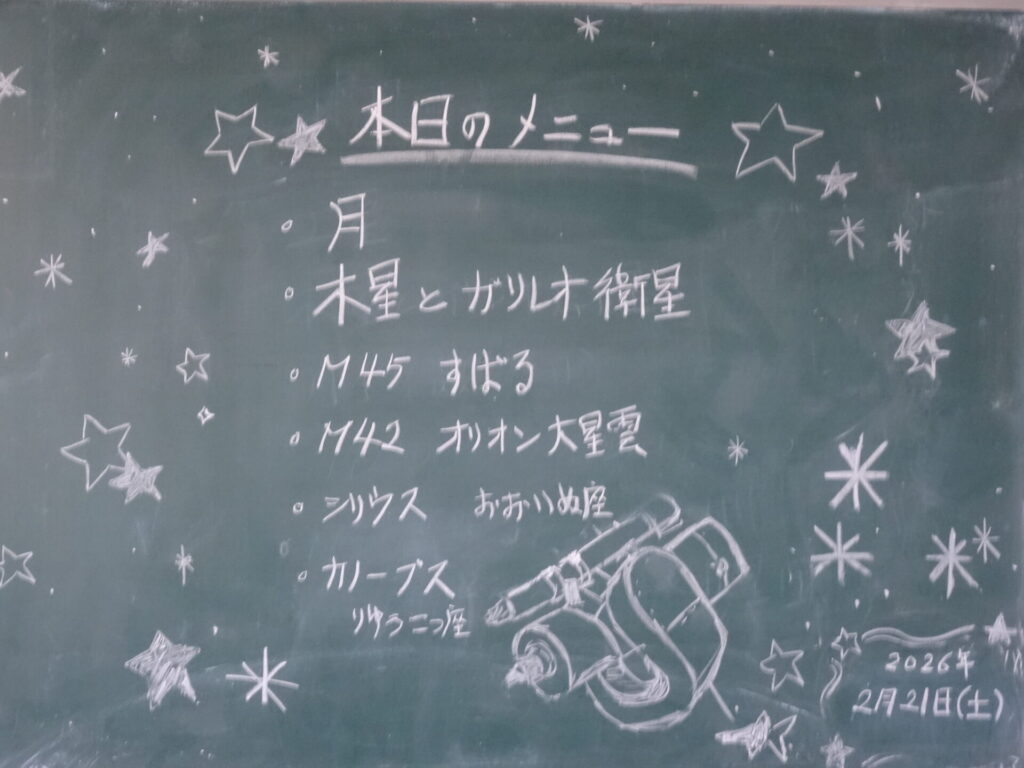 本日のメニュー
。月
。木星とガリレオ衛星
。M45 すばる
。M42 オリオン大星雲
。シリウス おおいぬ座
。カノープス
りゅうこつ座
2026年
2月21日(土)